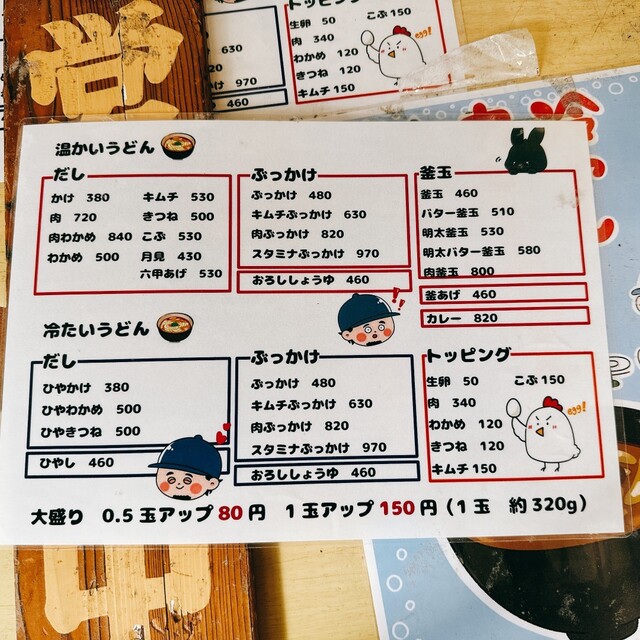 トッピング
生卵 50 こぶ 150
肉 340
わかめ 120
きつね 120
キムチ 150
egg!
630
970
460
温かいうどん
だし
かけ 380
肉 720
肉わかめ 840
わかめ 500
キムチ 530
きつね 500
こぶ 530
月見 430
六甲あげ 530
ぶっかけ
ぶっかけ 480
キムチぶっかけ 630
肉ぶっかけ 820
スタミナぶっかけ 970
おろししょうゆ 460
釜玉
釜玉 460
バター釜玉 510
明太釜玉 530
明太バター釜玉 580
肉釜玉 800
釜あげ 460
カレー 820
冷たいうどん
だし
ひやかけ 380
ひやわかめ 500
ひやきつね 500
ひやし 460
ぶっかけ
ぶっかけ 480
キムチぶっかけ 630
肉ぶっかけ 820
スタミナぶっかけ 970
おろししょうゆ 460
トッピング
生卵 50 こぶ 150
肉 340
わかめ 120
きつね 120
キムチ 150
egg!
大盛り 0.5玉アップ80円 1玉アップ150円(1玉 約320g)